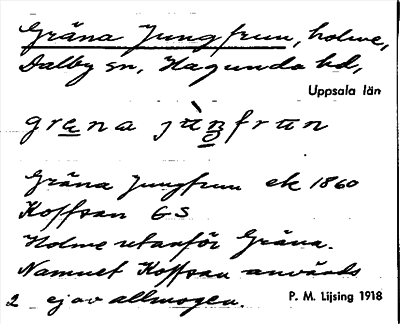 Gräna Jungfrun, holme,
Dalby sn, Hagunda hd,
Uppsala län
grana jùngfrun
Gräna Jungfrun ek 1860
Koffsan GS
Holme utanför Gräna.
Namnet Koffsan används
2 ej av allmogen.
P. M. Lijsing 1918